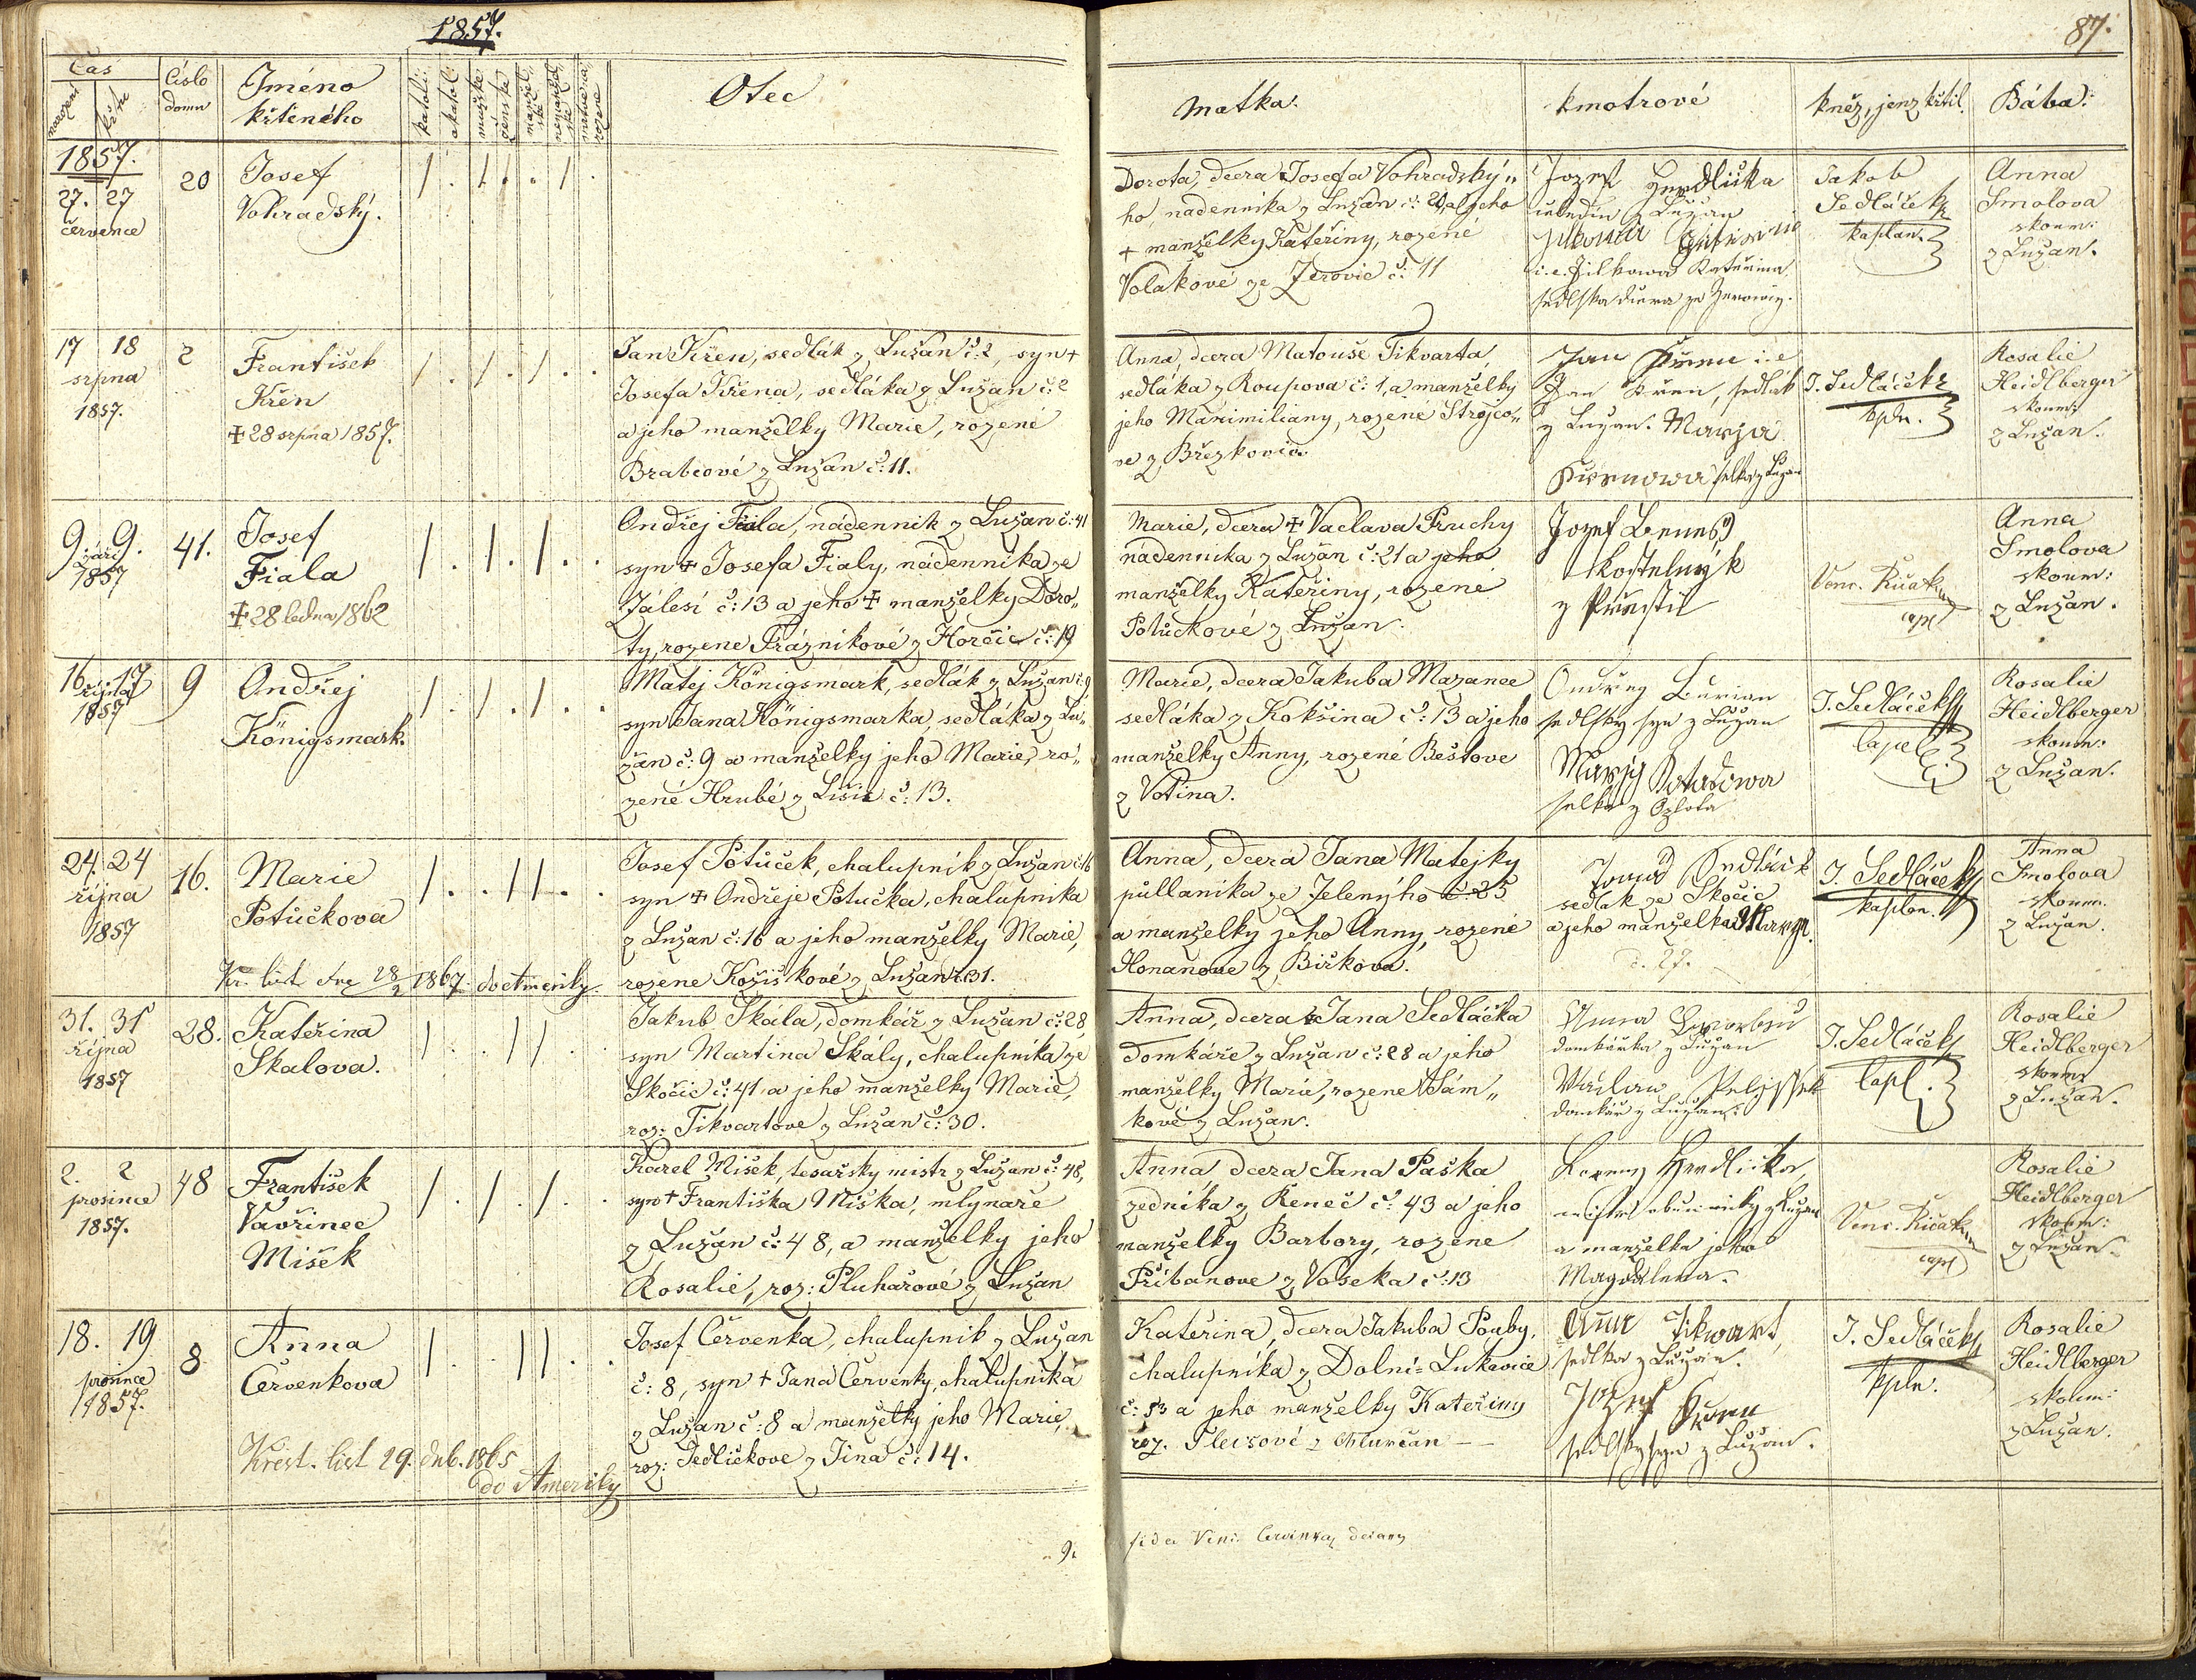 1857.
87.
Čas
narozen
křtu
Číslo domu
Jméno
křtěného
katolic.
akatol.
mužské
ženské
manžel„ské
nemanžel„ské
Otec
Matka.
Kmotrové
Kněz, jenž křtil.
Bába.
1857.
27. 27
července
20
Josef
Vohradský.
Dorota, dcera Josefa Vohradský„
ho, nadennika z Lužan č: 20 a jeho
+ manželky Kateřiny, rozené
Volakové ze Zerovic č: 11
Jozef Hrdlička
z Lužan
Kateřina
Jakob
Sedláček
kaplan.
Anna
Smolova
skoum:
z Lužan.
17 18
srpna
1857.
2
František
Křen
+ 28 srpna 1857.
Jan Křen, sedlák z Lužan č: 2, syn +
Josefa Křena, sedláka z Lužan č: 2
a jeho manželky Marie, rozené
Brabcové z Lužan č: 11.
Anna, dcera Matouše Tikvarta,
sedláka z Roupova č: 1, a manželky
jeho Maximiliany, rozené Strojco„
ve z Březkovic.
Jan Křen i.e
Jan Křen, sedlák
z Lužan. Marya
Křenowa selka z Lužan
J. Sedláček
kpln.
Rosalie
Heidlberger
skoum:
z Lužan.
9. 9.
září
1857
41.
Josef
Fiala
+ 28 ledna 1862
Ondřej Fiala, nádennik z Lužan č: 41
syn + Josefa Fialy, nádennika ze
Zálesí č: 13 a jeho + manželky Doro„
ty, rozene Práznikové z Horčic č: 19
Marie, dcera + Vaclava Pruchy
nadennika z Lužan č: 21 a jeho
manželky Kateřiny, rozené
Potučkové z Lužan.
Jozef Beneš
kostelnyk
z Přestic
Venc. Řičák
capl
Anna
Smolova
skoum:
z Lužan.
16. 17
října
1857
9
Ondřej
Königsmark.
Matej Königsmark, sedlák z Lužan č: 9,
syn Jana Königsmarka, sedláka z Lu„
žan č: 9 a manželky jeho Marie, ro„
zené Hrubé z Lišic č: 13.
Marie, dcera Jakuba Mazance
sedláka z Kokšina č: 13 a jeho
manželky Anny, rozené Beštove
z Votina.
Ondřeg Burian
sedlsky syn z Lužan
selka z
J. Sedláček
Capel
Rosalie
Heidlberger
skoum:
z Lužan.
24. 24
října
1857
16.
Marie
Potůčkova
Kr. list dne 28/2 1867 do Ameriky.
Josef Potůček, chalupník z Lužan č: 16
syn + Ondřeje Potučka, chalupníka
z Lužan č: 16 a jeho manželky Marie,
rozene Kožiškové z Lužan č: 31.
Anna, dcera Jana Matejky
půllanika ze Zelenýho č: 25
a manželky jeho Anny, rozené
Honanove z Bižkova.
sedlak ze Skočic
a jeho manzelka Marya.
č. 27.
J. Sedláček
kaplan.
Anna
Smolova
skoum.
z Lužan.
31. 31
října
1857
28.
Kateřina
Skalova.
Jakub Skála, domkář z Lužan č: 28,
syn Martina Skály, chalupníka ze
Skočic č: 41 a jeho manželky Marie,
roz: Tikvartove z Lužan č: 30.
Anna, dcera + Jana Sedláčka
domkáře z Lužan č: 28 a jeho
manželky Marie, rozene Sám„
kové z Lužan.
Anna
domkářka z Lužan
Václav
domkář z Lužan:
J. Sedláček
Capl.
Rosalie
Heidlberger
skoum
z Lužan.
2. 2
prosince
1857.
48
František
Vavřinec
Mišek
Karel Mišek, tesařsky mistr z Lužan č: 48,
syn + Františka Miška, mlynaře
z Lužan č: 48, a manželky jeho
Rosalie, roz: Pluhařové z Lužan
Anna, dcera Jana Paška
zednika z Reneč č: 43 a jeho
manželky Barbory, rozene
Přibanove z Voseka č: 13
Hrdlička,
mistr obuvnicky z Lužan
a manzelka jeho
Magdalena.
Venc. Řičák
capl
Rosalie
Heidlberger
skoum:
z Lužan.
18. 19
prosince
1857.
8
Anna
Červenkova
Křest. list 29. dub. 1865
do Ameriky
Josef Červenka, chalupnik z Lužan
č: 8, syn + Jana Červenky, chalupníka
z Lužan č: 8 a manželky jeho Marie,
roz: Jedličkove z Jina č: 14.
Kateřina, dcera Jakuba Pouby,
chalupníka z Dolní=Lukavice
č: 53 a jeho manželky Kateřiny
roz. Fleisové z Chlumčan —
Anna Tikwart,
sedlka z Lužan.
Jozef Křen
sedlsky syn z Lužan.
J. Sedláček
kpln.
Rosalie
Heidlberger
skoum:
z Lužan.